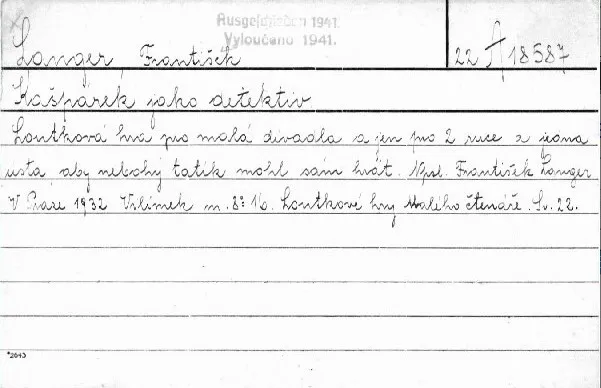 Ausgeschieden 1941.
Vyloučeno 1941.
Langer, František 22 A 18587
Kašpárek jako detektiv.
Loutková hra pro malá divadla a jen pro 2 ruce a jedna
ústa, aby nebohý tatík mohl sám hrát. Npsl. František Langer.
V Praze 1932 Vilímek m. 8° 16. Loutkové hry Malého čtenáře. Sv. 22.
*2043